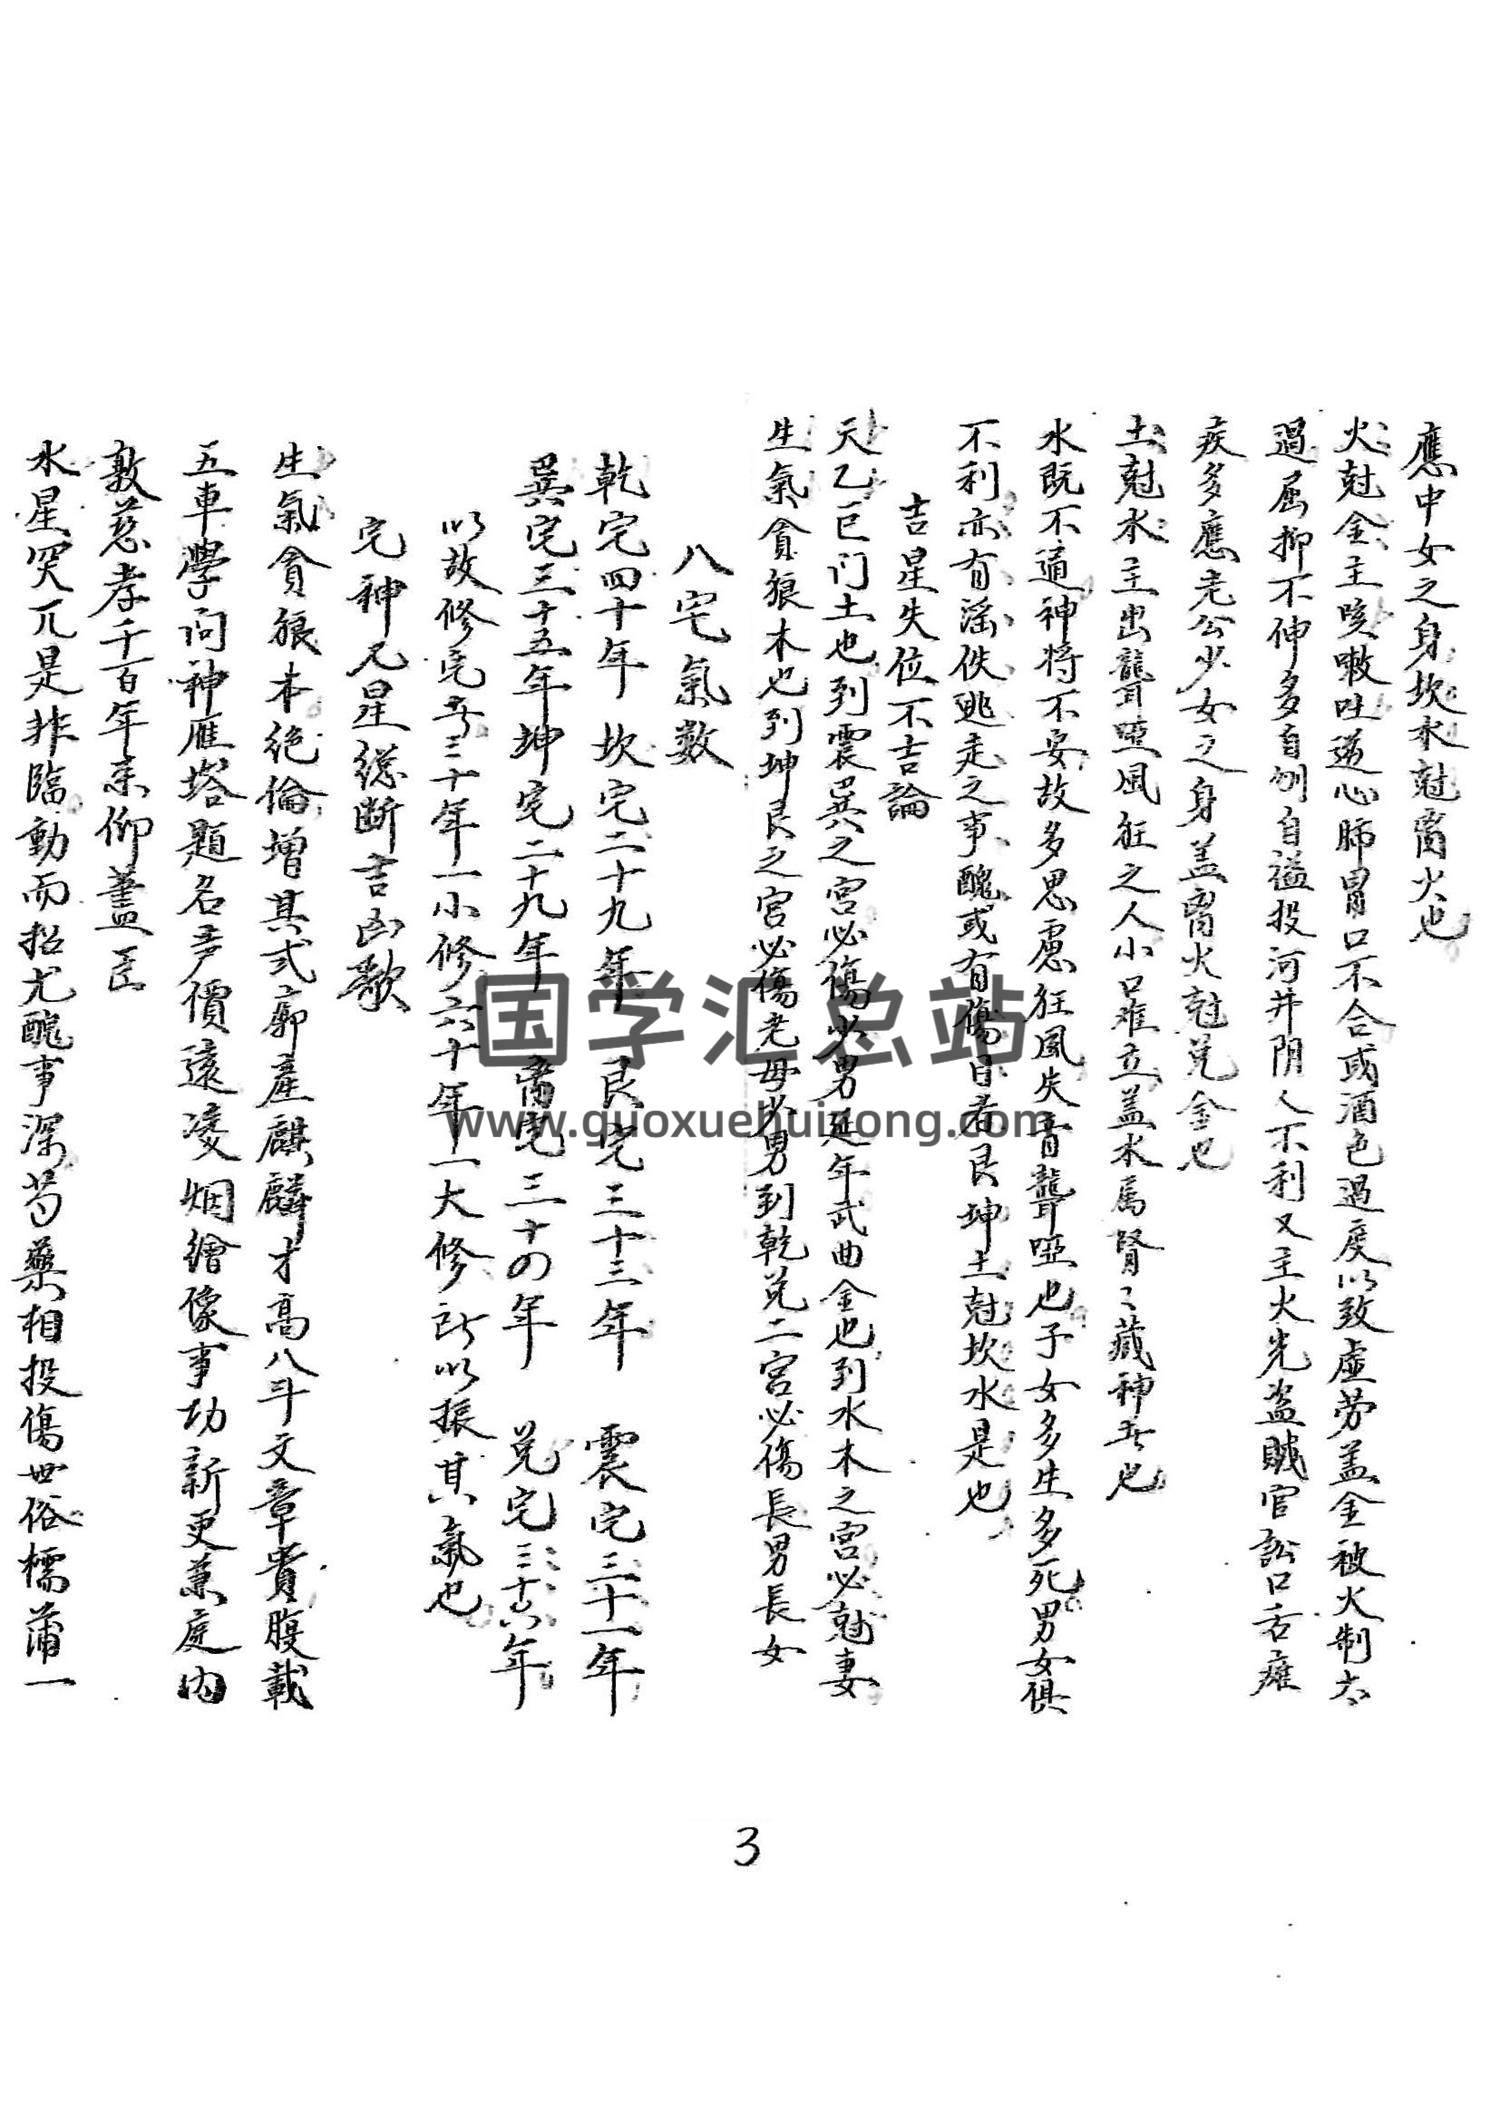 應中女之身坎水尅离火也
火尅金主咳嗽吐逆心肺胃口不合或酒色過度以致虚劳盖金被火制太
過屈抑不伸多自刎自縊投河井阴人不利又主火光盗賊官訟口舌癱
疾多應老公少女之身盖离火尅兑金也
土尅水主出聾啞風狂之人小口难立盖水属腎〻藏神者也
水既不通神将不安故多思慮狂風失音聾啞也子女多生多死男女俱
不利亦有滛佚逃走之事醜或有傷目者艮坤土尅坎水是也
吉星失位不吉論
天乙巨门土也到震巽之宫必傷少男延年武曲金也到水木之宫必尅妻
生氣貪狼木也到坤艮之宫必傷老母少男到乾兑二宫必傷長男長女
八宅氣数
乾宅四十年 坎宅二十九年 艮宅三十三年 震宅三十一年
巽宅三十五年 坤宅二十九年 离宅三十四年 兑宅三十六年
以故修宅者三十年一小修六十年一大修所以振其氣也
宅神九星總断吉凶歌
生氣貪狼本絶倫增其式廓產麒麟才高八斗文章貴腹載
五車學问神雁塔題名声價遠凌烟繪像事功新更兼庭内
敦慈孝千百年来仰藎臣
水星哭兀是非臨動而招尤醜事深芍藥相投傷世俗樗蒲一
3
国学汇总站
www.guoxuehuizong.com